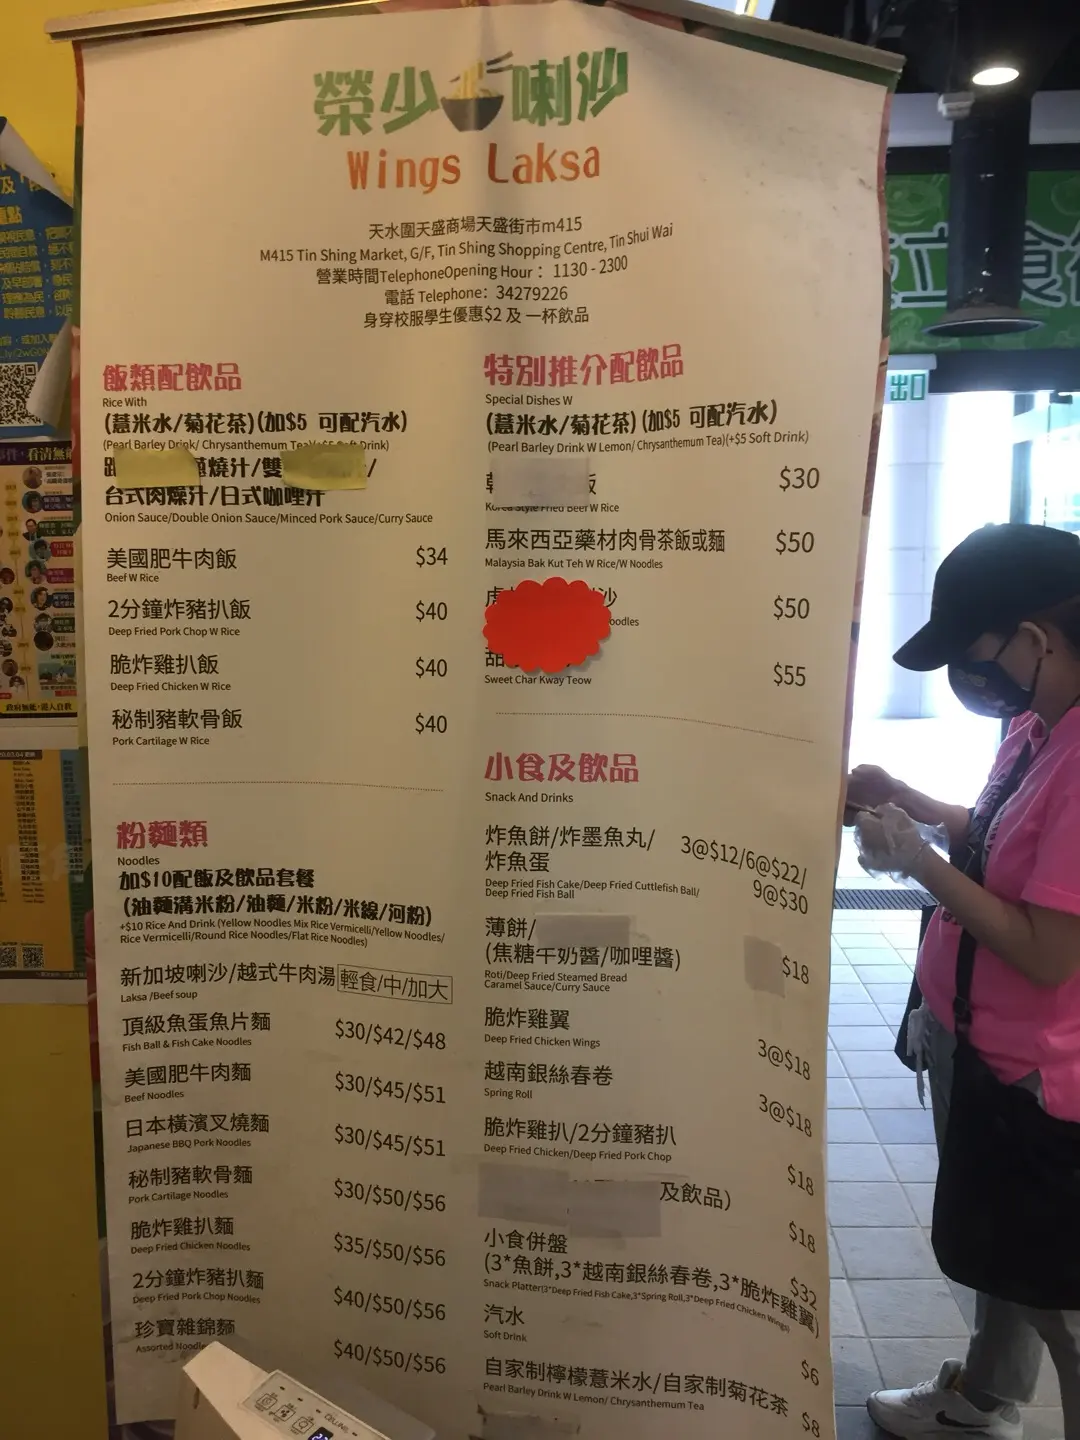 榮少喇沙
Wings Laksa
天水圍天盛商場天盛街市m415
M415 Tin Shing Market, G/F, Tin Shing Shopping Centre, Tin Shui Wai
營業時間TelephoneOpening Hour： 1130 - 2300
電話 Telephone： 34279226
身穿校服學生優惠$2 及 一杯飲品
飯類配飲品
Rice With
(薏米水/菊花茶)(加$5 可配汽水)
(Pearl Barley Drink/ Chrysanthemum Tea)(+$5 Soft Drink)
燒汁/雙
台式肉燥汁/日式咖哩汁
Onion Sauce/Double Onion Sauce/Minced Pork Sauce/Curry Sauce
美國肥牛肉飯 $34
Beef W Rice
2分鐘炸豬扒飯 $40
Deep Fried Pork Chop W Rice
脆炸雞扒飯 $40
Deep Fried Chicken W Rice
秘制豬軟骨飯 $40
Pork Cartilage W Rice
粉麵類
Noodles
加$10配飯及飲品套餐
(油麵溝米粉/油麵/米粉/米線/河粉)
+$10 Rice And Drink (Yellow Noodles Mix Rice Vermicelli/Yellow Noodles/
Rice Vermicelli/Round Rice Noodles/Flat Rice Noodles)
新加坡喇沙/越式牛肉湯 輕食/中/加大
Laksa /Beef soup
頂級魚蛋魚片麵 $30/$42/$48
Fish Ball & Fish Cake Noodles
美國肥牛肉麵 $30/$45/$51
Beef Noodles
日本橫濱叉燒麵 $30/$45/$51
Japanese BBQ Pork Noodles
秘制豬軟骨麵 $30/$50/$56
Pork Cartilage Noodles
脆炸雞扒麵 $35/$50/$56
Deep Fried Chicken Noodles
2分鐘炸豬扒麵 $40/$50/$56
Deep Fried Pork Chop Noodles
珍寶雜錦麵 $40/$50/$56
Assorted Noodle
特別推介配飲品
Special Dishes W
(薏米水/菊花茶)(加$5 可配汽水)
(Pearl Barley Drink W Lemon/ Chrysanthemum Tea)(+$5 Soft Drink)
飯 $30
Korea Style Fried Beef W Rice
馬來西亞藥材肉骨茶飯或麵 $50
Malaysia Bak Kut Teh W Rice/W Noodles
沙 $50
oodles
甜 $55
Sweet Char Kway Teow
小食及飲品
Snack And Drinks
炸魚餅/炸墨魚丸/ 3@$12/6@$22/
炸魚蛋 9@$30
Deep Fried Fish Cake/Deep Fried Cuttlefish Ball/
Deep Fried Fish Ball
薄餅/
(焦糖牛奶醬/咖哩醬) $18
Roti/Deep Fried Steamed Bread
Caramel Sauce/Curry Sauce
脆炸雞翼 3@$18
Deep Fried Chicken Wings
越南銀絲春卷 3@$18
Spring Roll
脆炸雞扒/2分鐘豬扒 $18
Deep Fried Chicken/Deep Fried Pork Chop
及飲品) $18
小食併盤
(3*魚餅,3*越南銀絲春卷,3*脆炸雞翼) $32
Snack Platter(3*Deep Fried Fish Cake,3*Spring Roll,3*Deep Fried Chicken Wings)
汽水 $6
Soft Drink
自家制檸檬薏米水/自家制菊花茶 $8
Pearl Barley Drink W Lemon/ Chrysanthemum Tea
出口